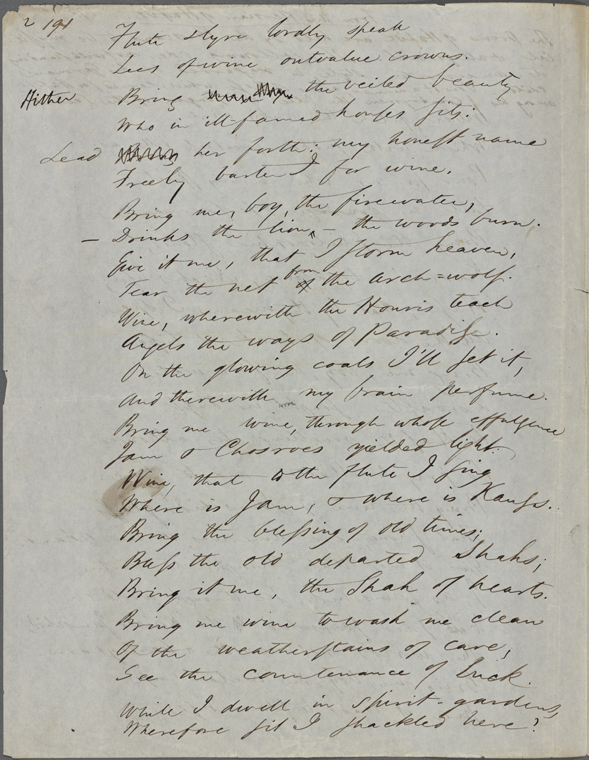 2 191
Flute & lyre lordly speak
Lees of wine outvalue crowns.
Hither Bring the veiled beauty
Who in ill-famed houses sits:
Lead her forth: my honest name
Freely barter I for wine.
Bring me, boy, the firewater,
— Drinks the lion, — the woods burn.
Give it me, that I storm heaven,
Tear the net from the arch=wolf.
Wine, wherewith the Houris teach
Angels the ways of Paradise.
On the glowing coals I'll set it,
And therewith my brain perfume.
Bring me wine, through whose effulgence
Jam & Chosroes yielded light.
Wine, that to the flute I sing
Where is Jam, & where is Kauss.
Bring the blessing of old times;
Bless the old departed Shahs;
Bring it me, the Shah of hearts.
Bring me wine to wash me clean
Of the weatherstains of care,
See the countenance of luck.
While I dwell in spirit-gardens,
Wherefore sit I shackled here?